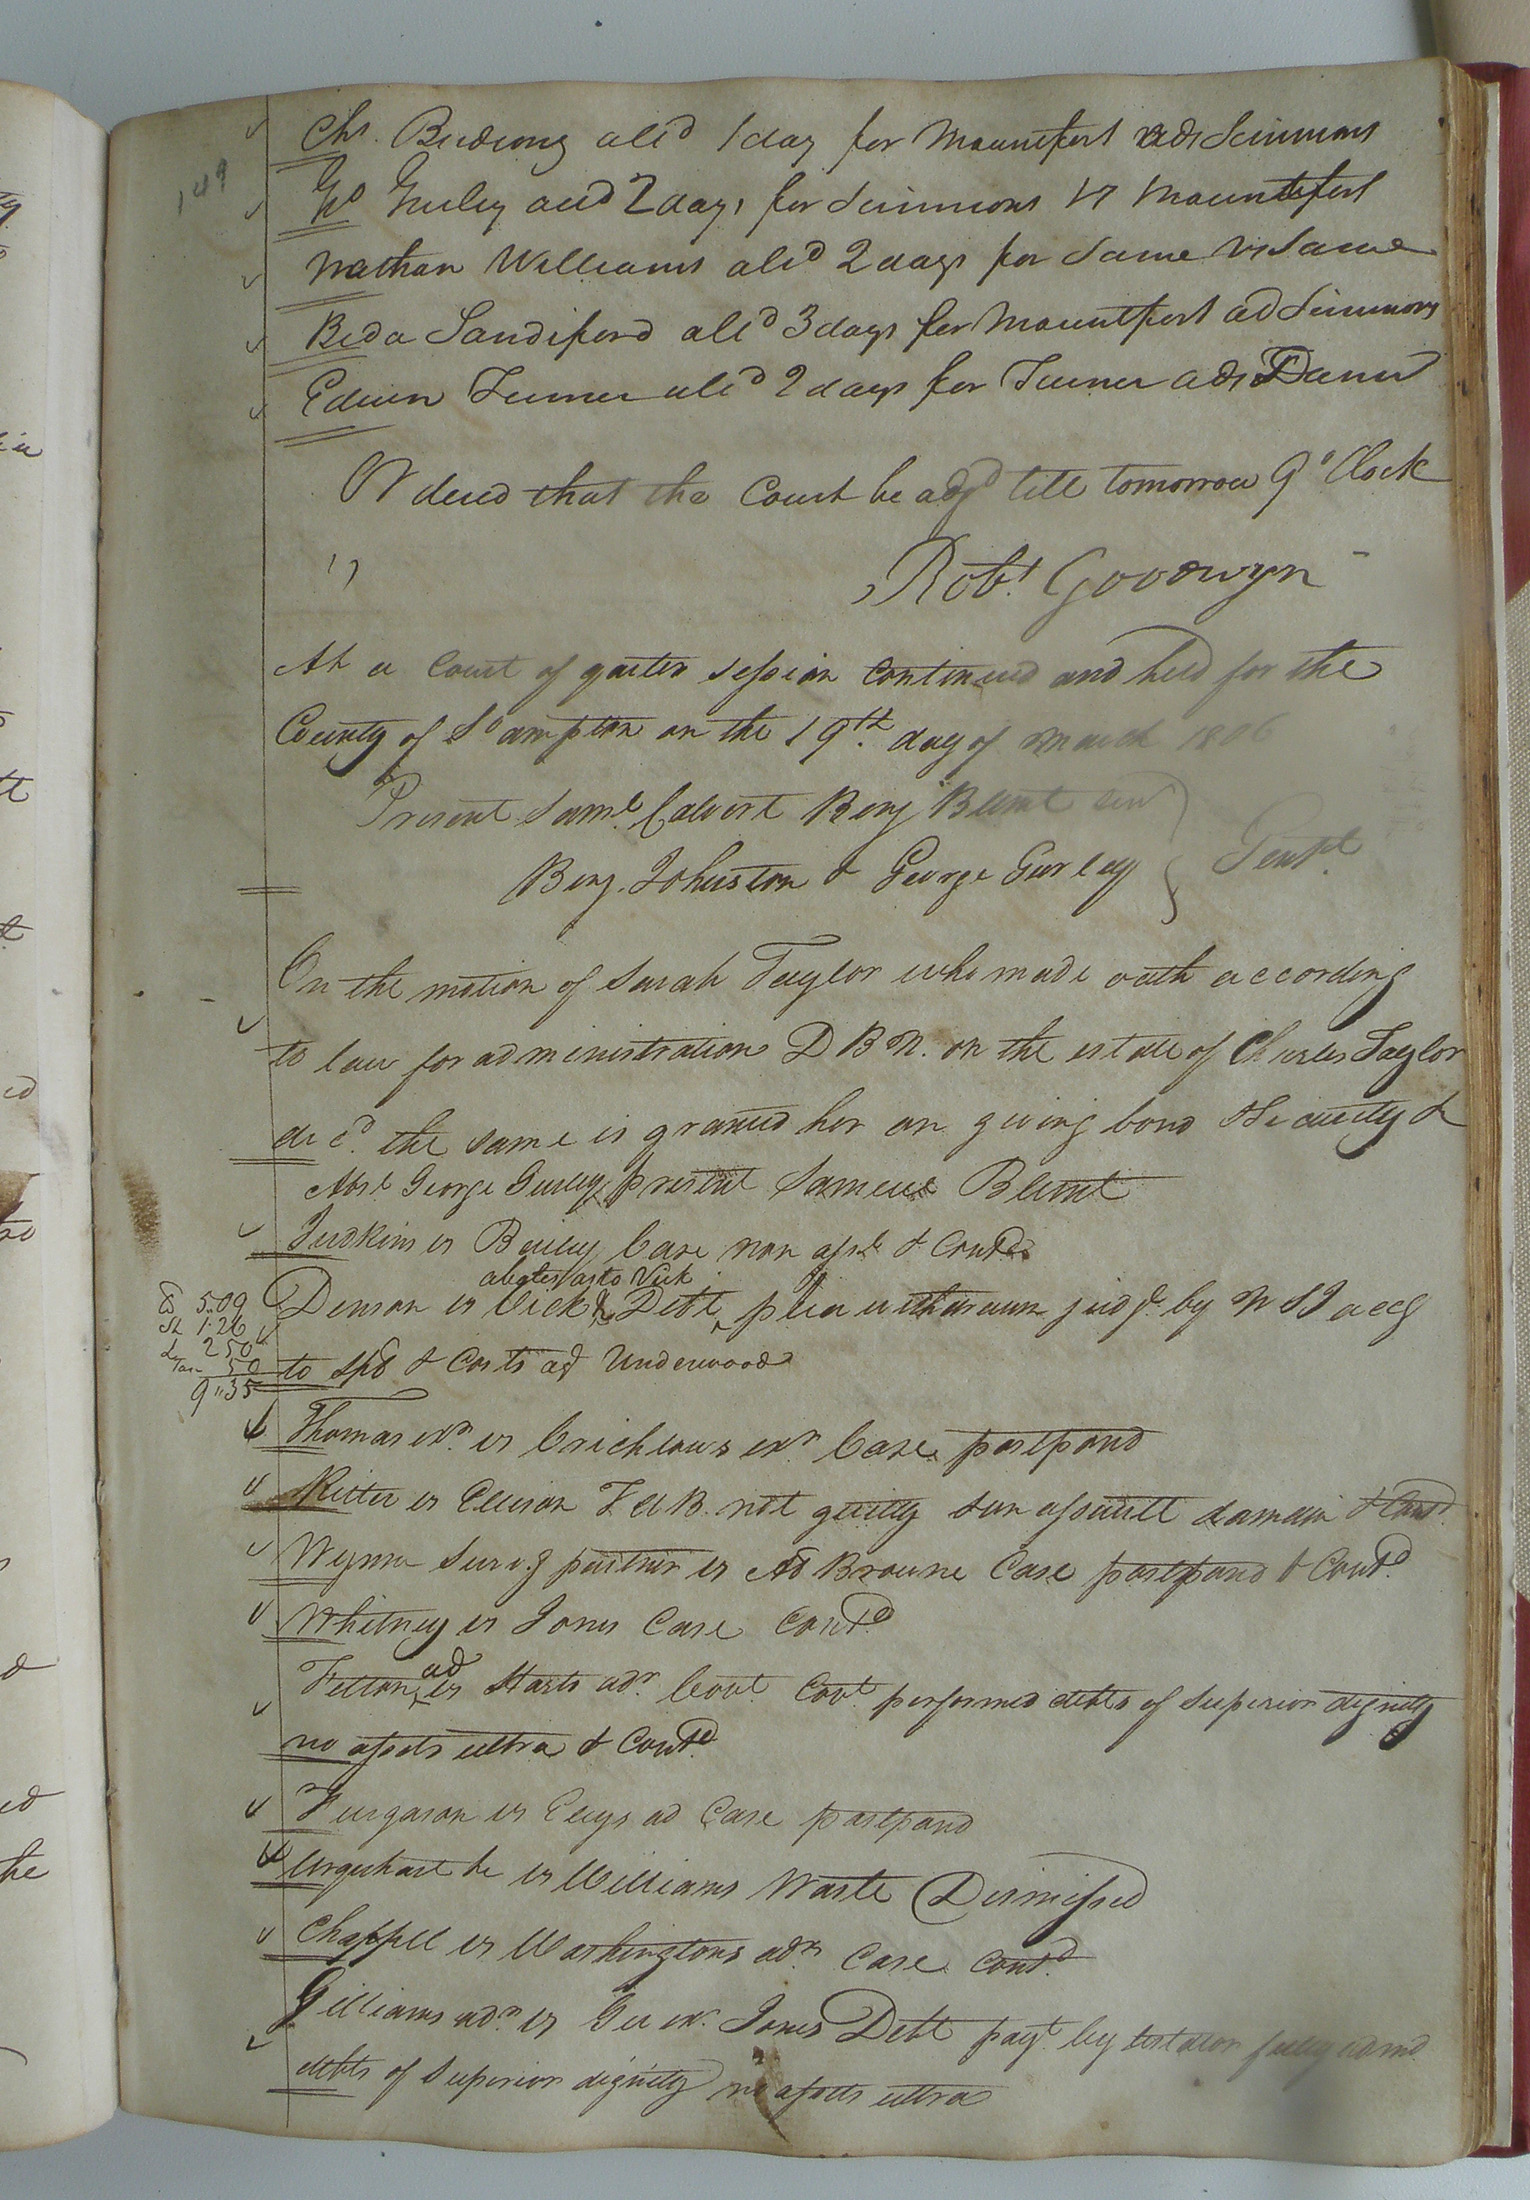 149
Chs. atd 1 day for Mountfort ads Simmons
Go Gurley attd 2 days for Simmons vs Mountfort
Nathan Williams attd 2 days for Same vs Same
Beda Sandiford attd 3 days for Mountfort ad Simmons
Edwin Turner attd 2 days for Turner ads
Ordered that the Court be adjd till tomorrow 9 oClock
Robt. Goodwyn
At a Court of quarter session continued and held for the
County of So ampton on the 19th. day of March 1806
Present Saml. Calvert Benj Blunt senr
Benj. Johnston & George Gurley } Gent.
On the motion of Sarah Taylor who made oath according
to law for administration D B N. on the estate of Charles Taylor
decd. the same is granted her on giving bond & Security &
Abst George Gurley, present Samuel Blunt
Judkins vs Bailey Case non asst & Contd
abates as to Vick
Denson vs Vick & Debt, plea withdrawn judgt. by accg
to spt & Costs agt Underwood
C 5.09
Sh 1.26
La 2 50
Tax 50
9 " 35
Thomas exr. vs Crichlows exr. Case postpond
vs Ellison T A B. not guilty son assault demain & Contd.
Wynn survg partner vs Browne Case postpond & Contd.
Whitney vs Jones Case Contd
ad
Felton vs Harts adr. Covt. Covt. performed debts of superior dignity
no assets ultra & Contd
Furgason vs Elleys ad Case postpond
Urquhart &c vs Williams Waste Dismissed
Chappell vs Washingtons adr. Case Contd
Gilliams adr. vs Gee exr. Jones Debt payt. by testator fully admd.
debts of superior dignity no assets ultra